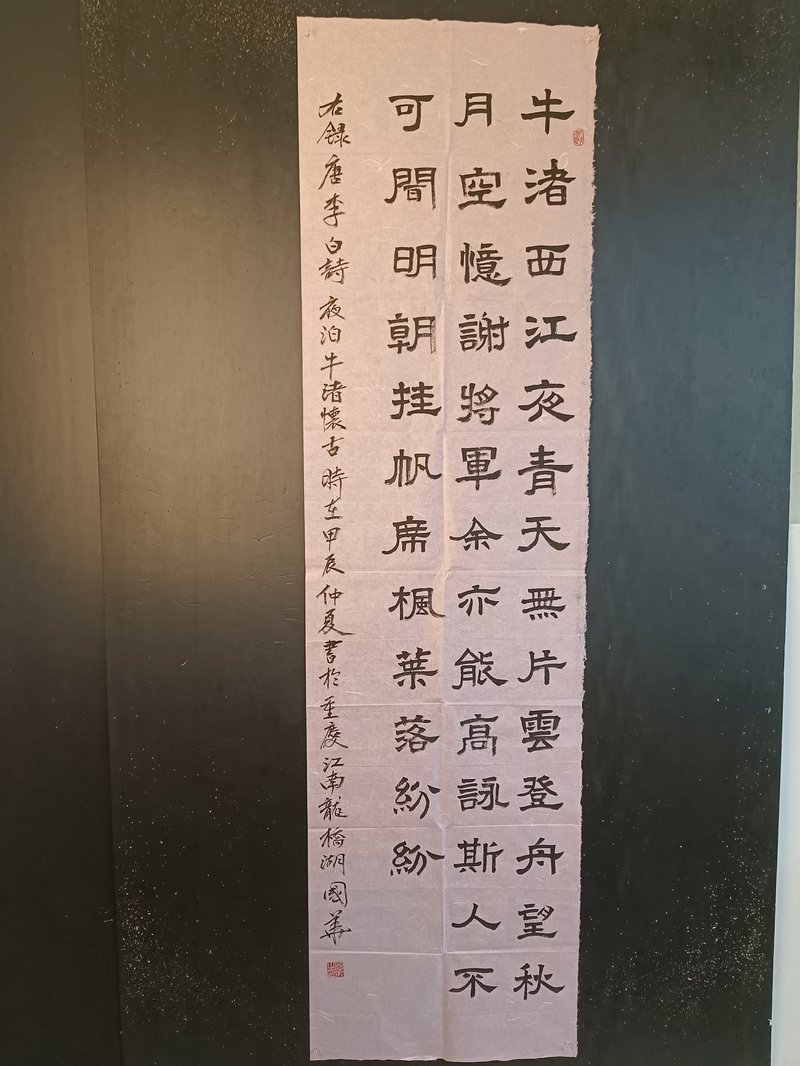 牛渚西江夜青天無片雲登舟望秋
月空憶謝將軍余亦能高詠斯人不
可聞明朝挂帆席楓葉落紛紛
右録唐李白詩夜泊牛渚懷古時在甲辰仲夏書於重慶江南龍橋湖國華